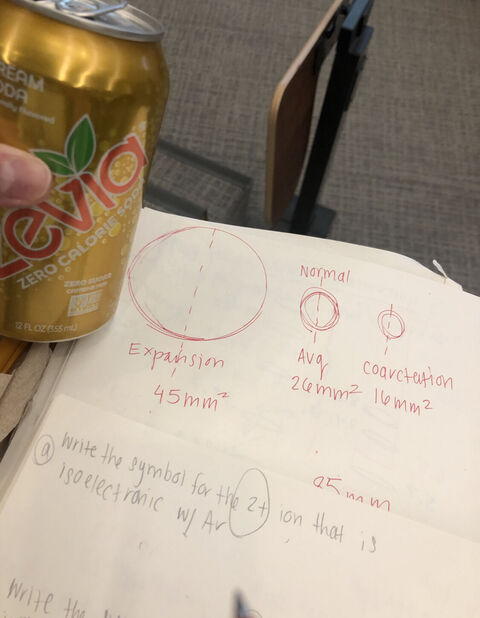 CREAM
SODA
Zevia
ZERO CALORIE SODA
ZERO SUGAR
12 FL OZ (355 mL)
Normal
Expansion
45mm²
Avg
26mm²
Coarctation
16mm²
a write the symbol for the 2+ ion that is
isoelectronic w/ Ar
write the